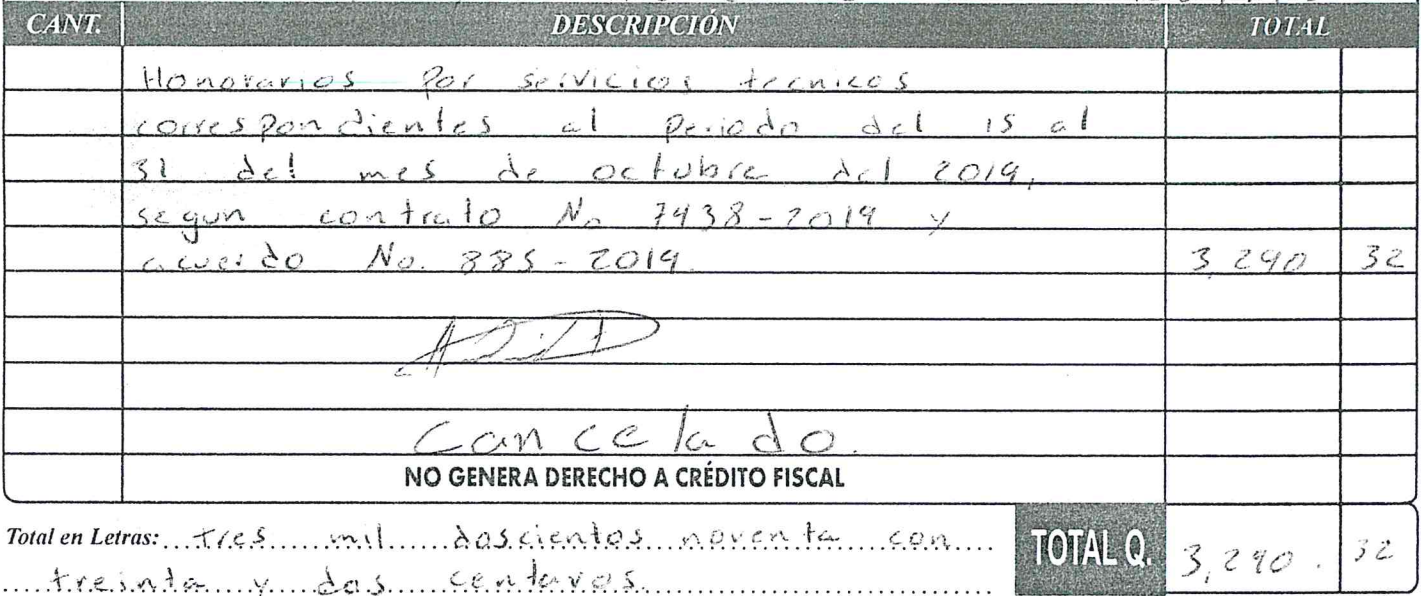 CANT. DESCRIPCIÓN TOTAL
Honorarios Por servicios tecnicos
correspondientes al Periodo del 15 al
31 del mes de octubre del 2019,
segun contrato No 7438-2019 y
acuerdo No. 885-2019. 3,290 32
Cancelado.
NO GENERA DERECHO A CRÉDITO FISCAL
Total en Letras: tres mil doscientos noventa con
treinta y dos centavos.
TOTAL Q. 3,290. 32